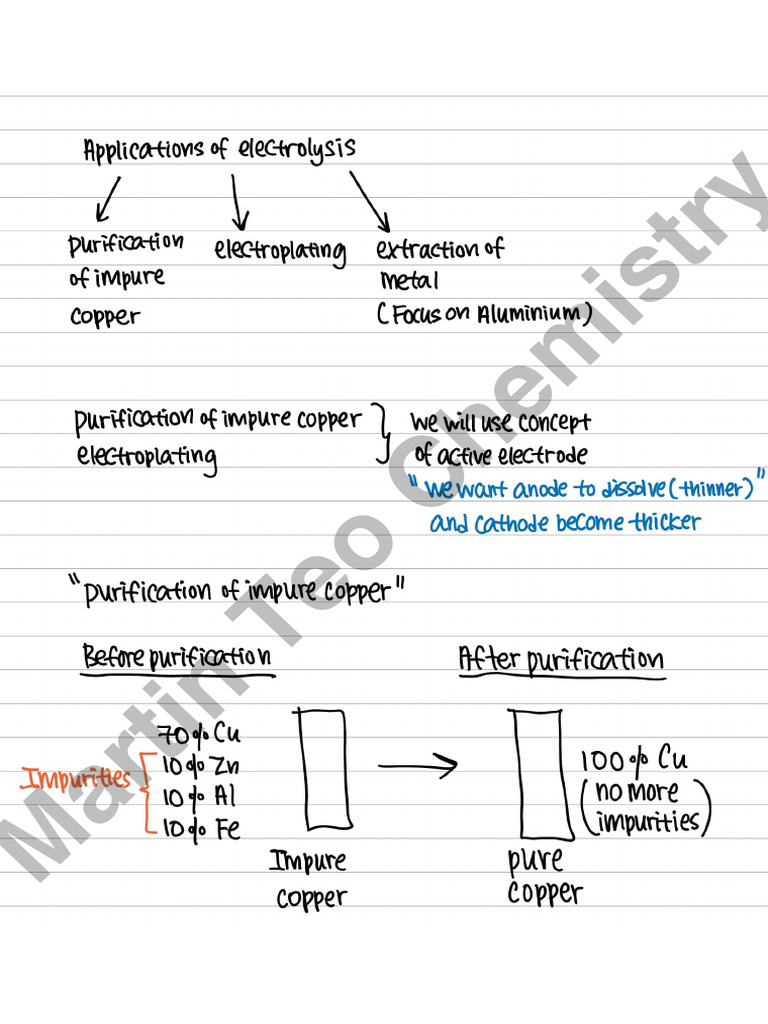 Applications of electrolysis
purification
of impure
copper
electroplating
extraction of
metal
(Focus on Aluminium)
purification of impure copper
electroplating
we will use concept
of active electrode
"we want anode to dissolve (thinner)"
and cathode become thicker
"purification of impure copper"
Before purification
After purification
Impurities
70% Cu
10% Zn
10% Al
10% Fe
Impure
copper
100% Cu
(no more
impurities)
pure
copper
Martin Teo Chemistry